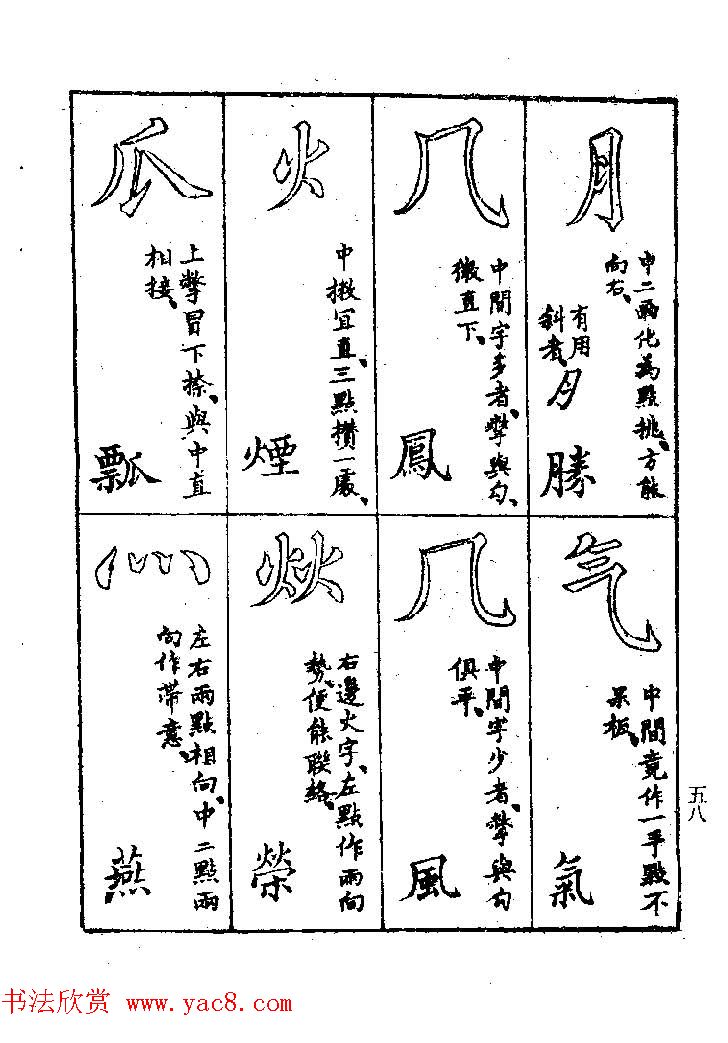 月
中二兩化為點挑、方能
向右、
有用
斜者、
月
勝
几
中間字多者、撆與勾、
微直下、
鳳
火
中撆宜直、三點攢一處、
煙
瓜
上撆冒下捺、與中直
相接、
瓢
气
中間竟作一平點不
呆板、
氣
几
中間字少者、撆與勾
俱平、
風
炏
右邊火字、左點作兩向
勢、便能聯絡、
榮
灬
左右兩點相向、中二點兩
向作帶意、
燕
五八
书法欣赏 www.yac8.com